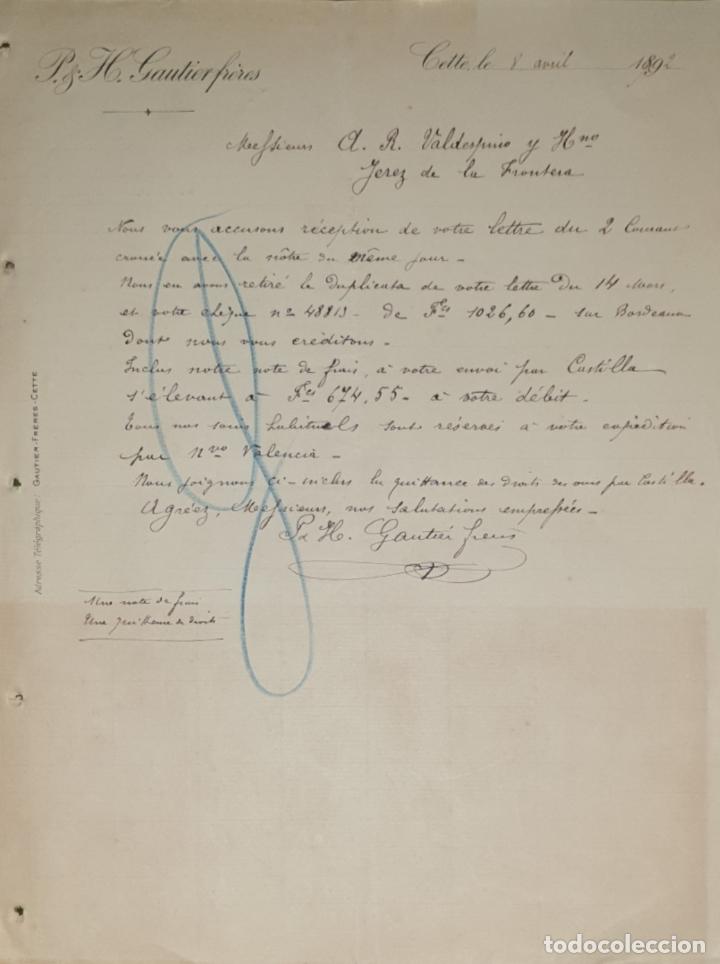 P. & H. Gautier frères
Cette, le 8 avril 1892
Messieurs A. R. Valdespino y Hno
Jerez de la Frontera
Nous vous accusons réception de votre lettre du 2 Courant
croisée avec la nôtre du même jour -
Nous en avons retiré le duplicata de votre lettre du 14 Mars,
et votre chèque no 48813 - de Fcs 1026,60 - sur Bordeaux
dont nous vous créditons -
Inclus notre note de frais, à votre envoi par Castilla
s'élevant à Fcs 674,55 - à votre débit. -
Tous nos soins habituels sont réservés à votre expédition
par Nvo Valencia -
Nous joignons ci-inclus la quittance des droits des par Castilla.
Agréez, Messieurs, nos salutations empressées -
P & H. Gautier frères
Une note de frais
Une quittance de droits
Adresse Télégraphique: GAUTIER-FRÈRES-CETTE
todocoleccion